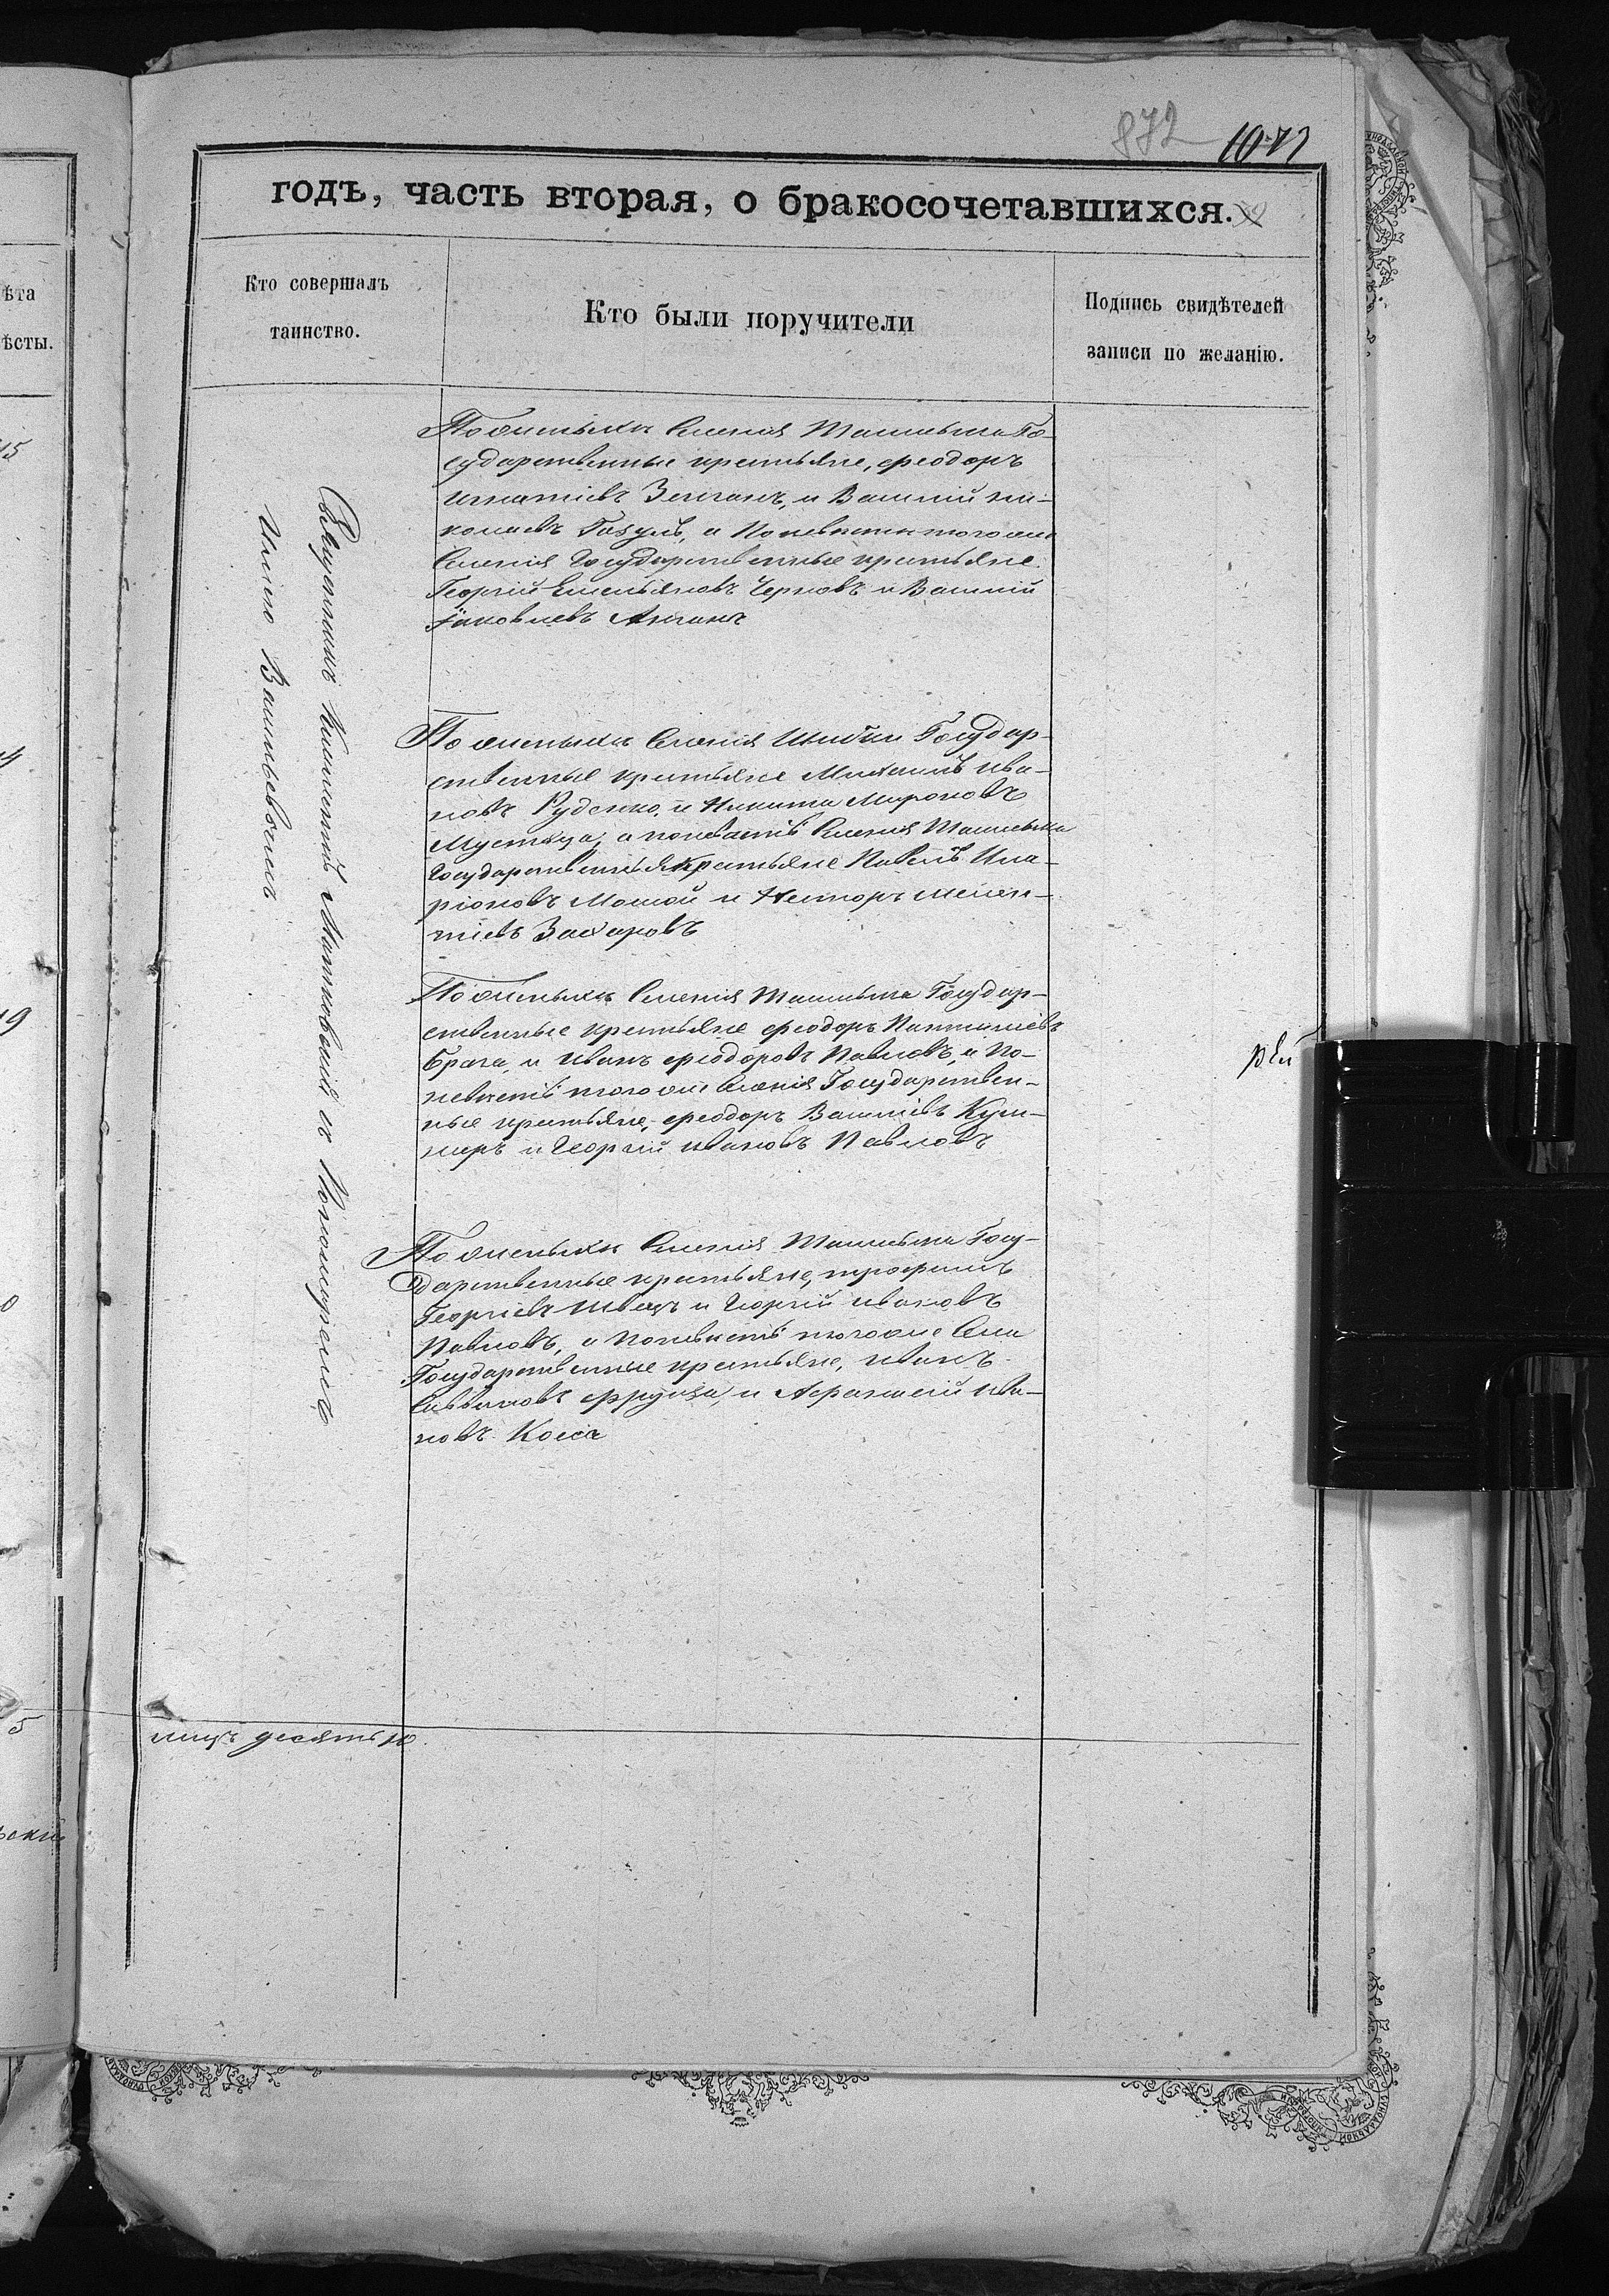 872 1077
годъ, часть вторая, о бракосочетавшихся.
Кто совершалъ
таинство.
Кто были поручители
Подпись свидѣтелей
записи по желанію.
ѣта
ѣсты.
15
4
19
0
5
Священникъ Климентій с Пономаремъ
Иліею Васильевичемъ
По женихѣ Селенія Ташлыка Го-
сударственные крестьяне, Феодоръ
Игнатіевъ и Василій Ни-
колаевъ Гозулъ, а по невѣстѣ того же
Селенія Государственные крестьяне
Георгій Емельяновъ Черновъ и Василій
Яковлевъ
По женихѣ Селенія Государ-
ственные крестьяне Михаилъ Ива-
новъ Руденко, и Никита Мироновъ
Мустяца, а по невѣстѣ Селенія Ташлыка
Государственныя крестьяне Павелъ Ила-
ріоновъ и Несторъ Мелен-
тіевъ Захаровъ
По женихѣ Селенія Ташлыка Государ-
ственные крестьяне Феодоръ
Брага, и Иванъ Феодоровъ Павловъ, а по-
невѣстѣ того же Селенія Государствен-
ные крестьяне, Феодоръ Василіевъ Куш-
ниръ и Георгій Ивановъ Павловъ
По женихѣ Селенія Ташлыка Госу-
дарственные крестьяне, Трофимъ
Георгіевъ Швецъ и Георгій Ивановъ
Павловъ, а по невѣстѣ того же Села
Государственные крестьяне, Иванъ
Саввиновъ Фрунза, и Афанасій Ива-
новъ
лицъ десять 10.